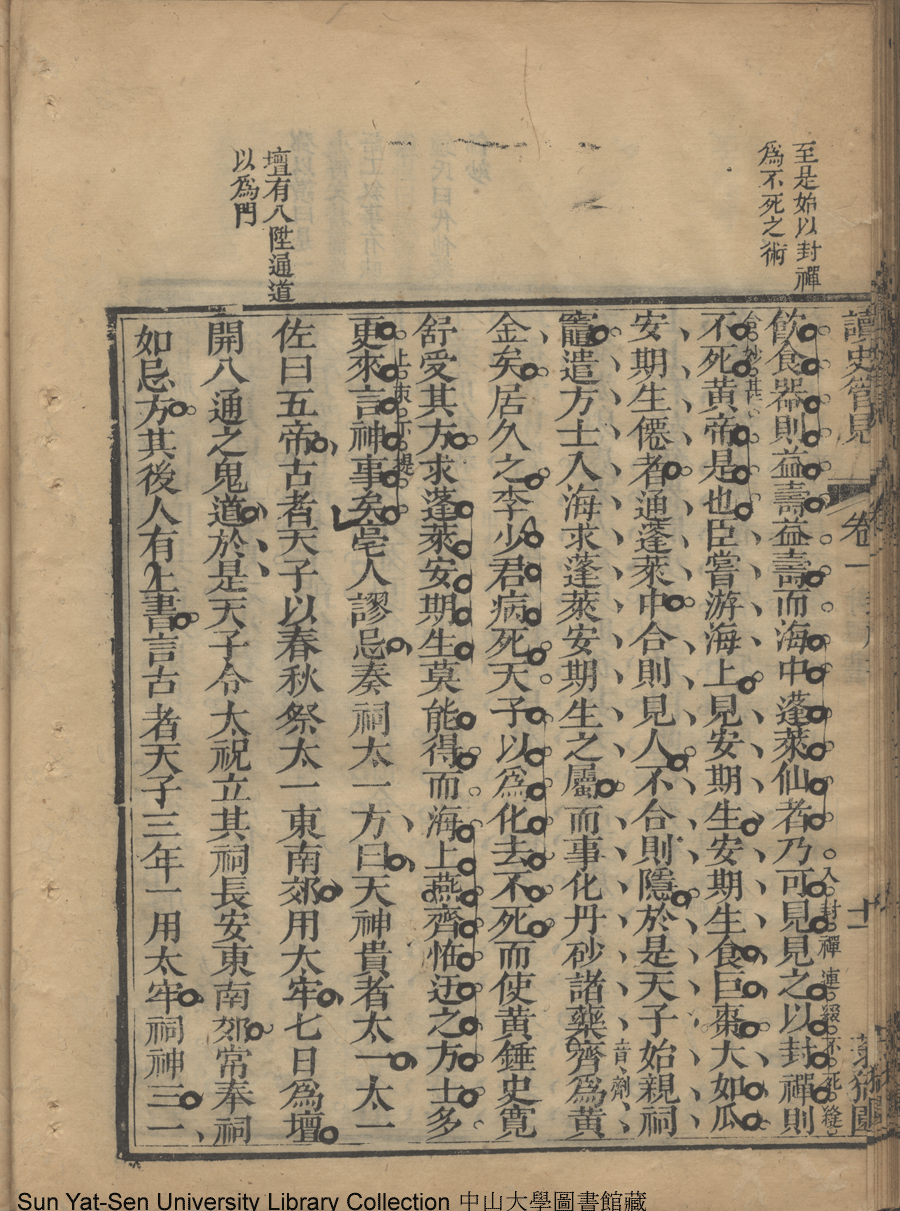 讀史管見
卷一
十一
至是始以封禪
爲不死之術
飲食器則益壽益壽而海中蓬萊仙者乃可見見之以封禪則
入封禪連綴不死
不死黃帝是也臣嘗游海上見安期生安期生食巨棗大如瓜
安期生僊者通蓬萊中合則見人不合則隱於是天子始親祠
竈遣方士入海求蓬萊安期生之屬而事化丹砂諸藥齊爲黃
音劑
金矣居久之李少君病死天子以爲化去不死而使黃錘史寬
舒受其方求蓬萊安期生莫能得而海上燕齊恠迂之方士多
更來言神事矣亳人謬忌奏祠太一方曰天神貴者太一太一
佐曰五帝古者天子以春秋祭太一東南郊用大牢七日爲壇
壇有八陞通道
以爲門
開八通之鬼道於是天子令太祝立其祠長安東南郊常奉祠
如忌方其後人有上書言古者天子三年一用太牢祠神三一
Sun Yat-Sen University Library Collection 中山大學圖書館藏